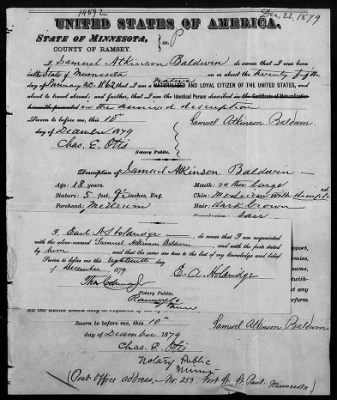 14892
Dec. 22, 1879
UNITED STATES OF AMERICA.
STATE OF MINNESOTA,
COUNTY OF RAMSEY. } ss.
I Samuel Atkinson Baldwin do swear that I was born
in the State of Minnesota on or about the twenty fifth
day of January A.D. 1862 that I am a native
and LOYAL CITIZEN OF THE UNITED STATES, and
about to travel abroad; and further, that I am the Identical Person described in the Certificate of Naturalization
herewith presented in the annexed description
Sworn to before me, this 18th
day of December 1879
Samuel Atkinson Baldwin
Chas. E. Otis
Notary Public.
Description of Samuel Atkinson Baldwin
Age: 18 years.
Mouth: large
Stature: 5 feet, 9½ inches, Eng.
Chin: Medium with dimple
Forehead: Medium
Hair: dark brown
fair
I, Earl A. Holdridge, do swear that I am acquainted
with the above-named Samuel Atkinson Baldwin and with the facts stated
by him and that the same are true to the best of my knowledge and belief
Sworn to before me this eighteenth day
of December, 1879
E. A. Holdridge
Notary Public
Ramsey Co
Minn
Sworn to before me, this 18
day of December 1879
Samuel Atkinson Baldwin
Chas. E. Otis
Notary Public
Minn
(Post Office address, No. 253 Fort St. St. Paul, Minnesota)